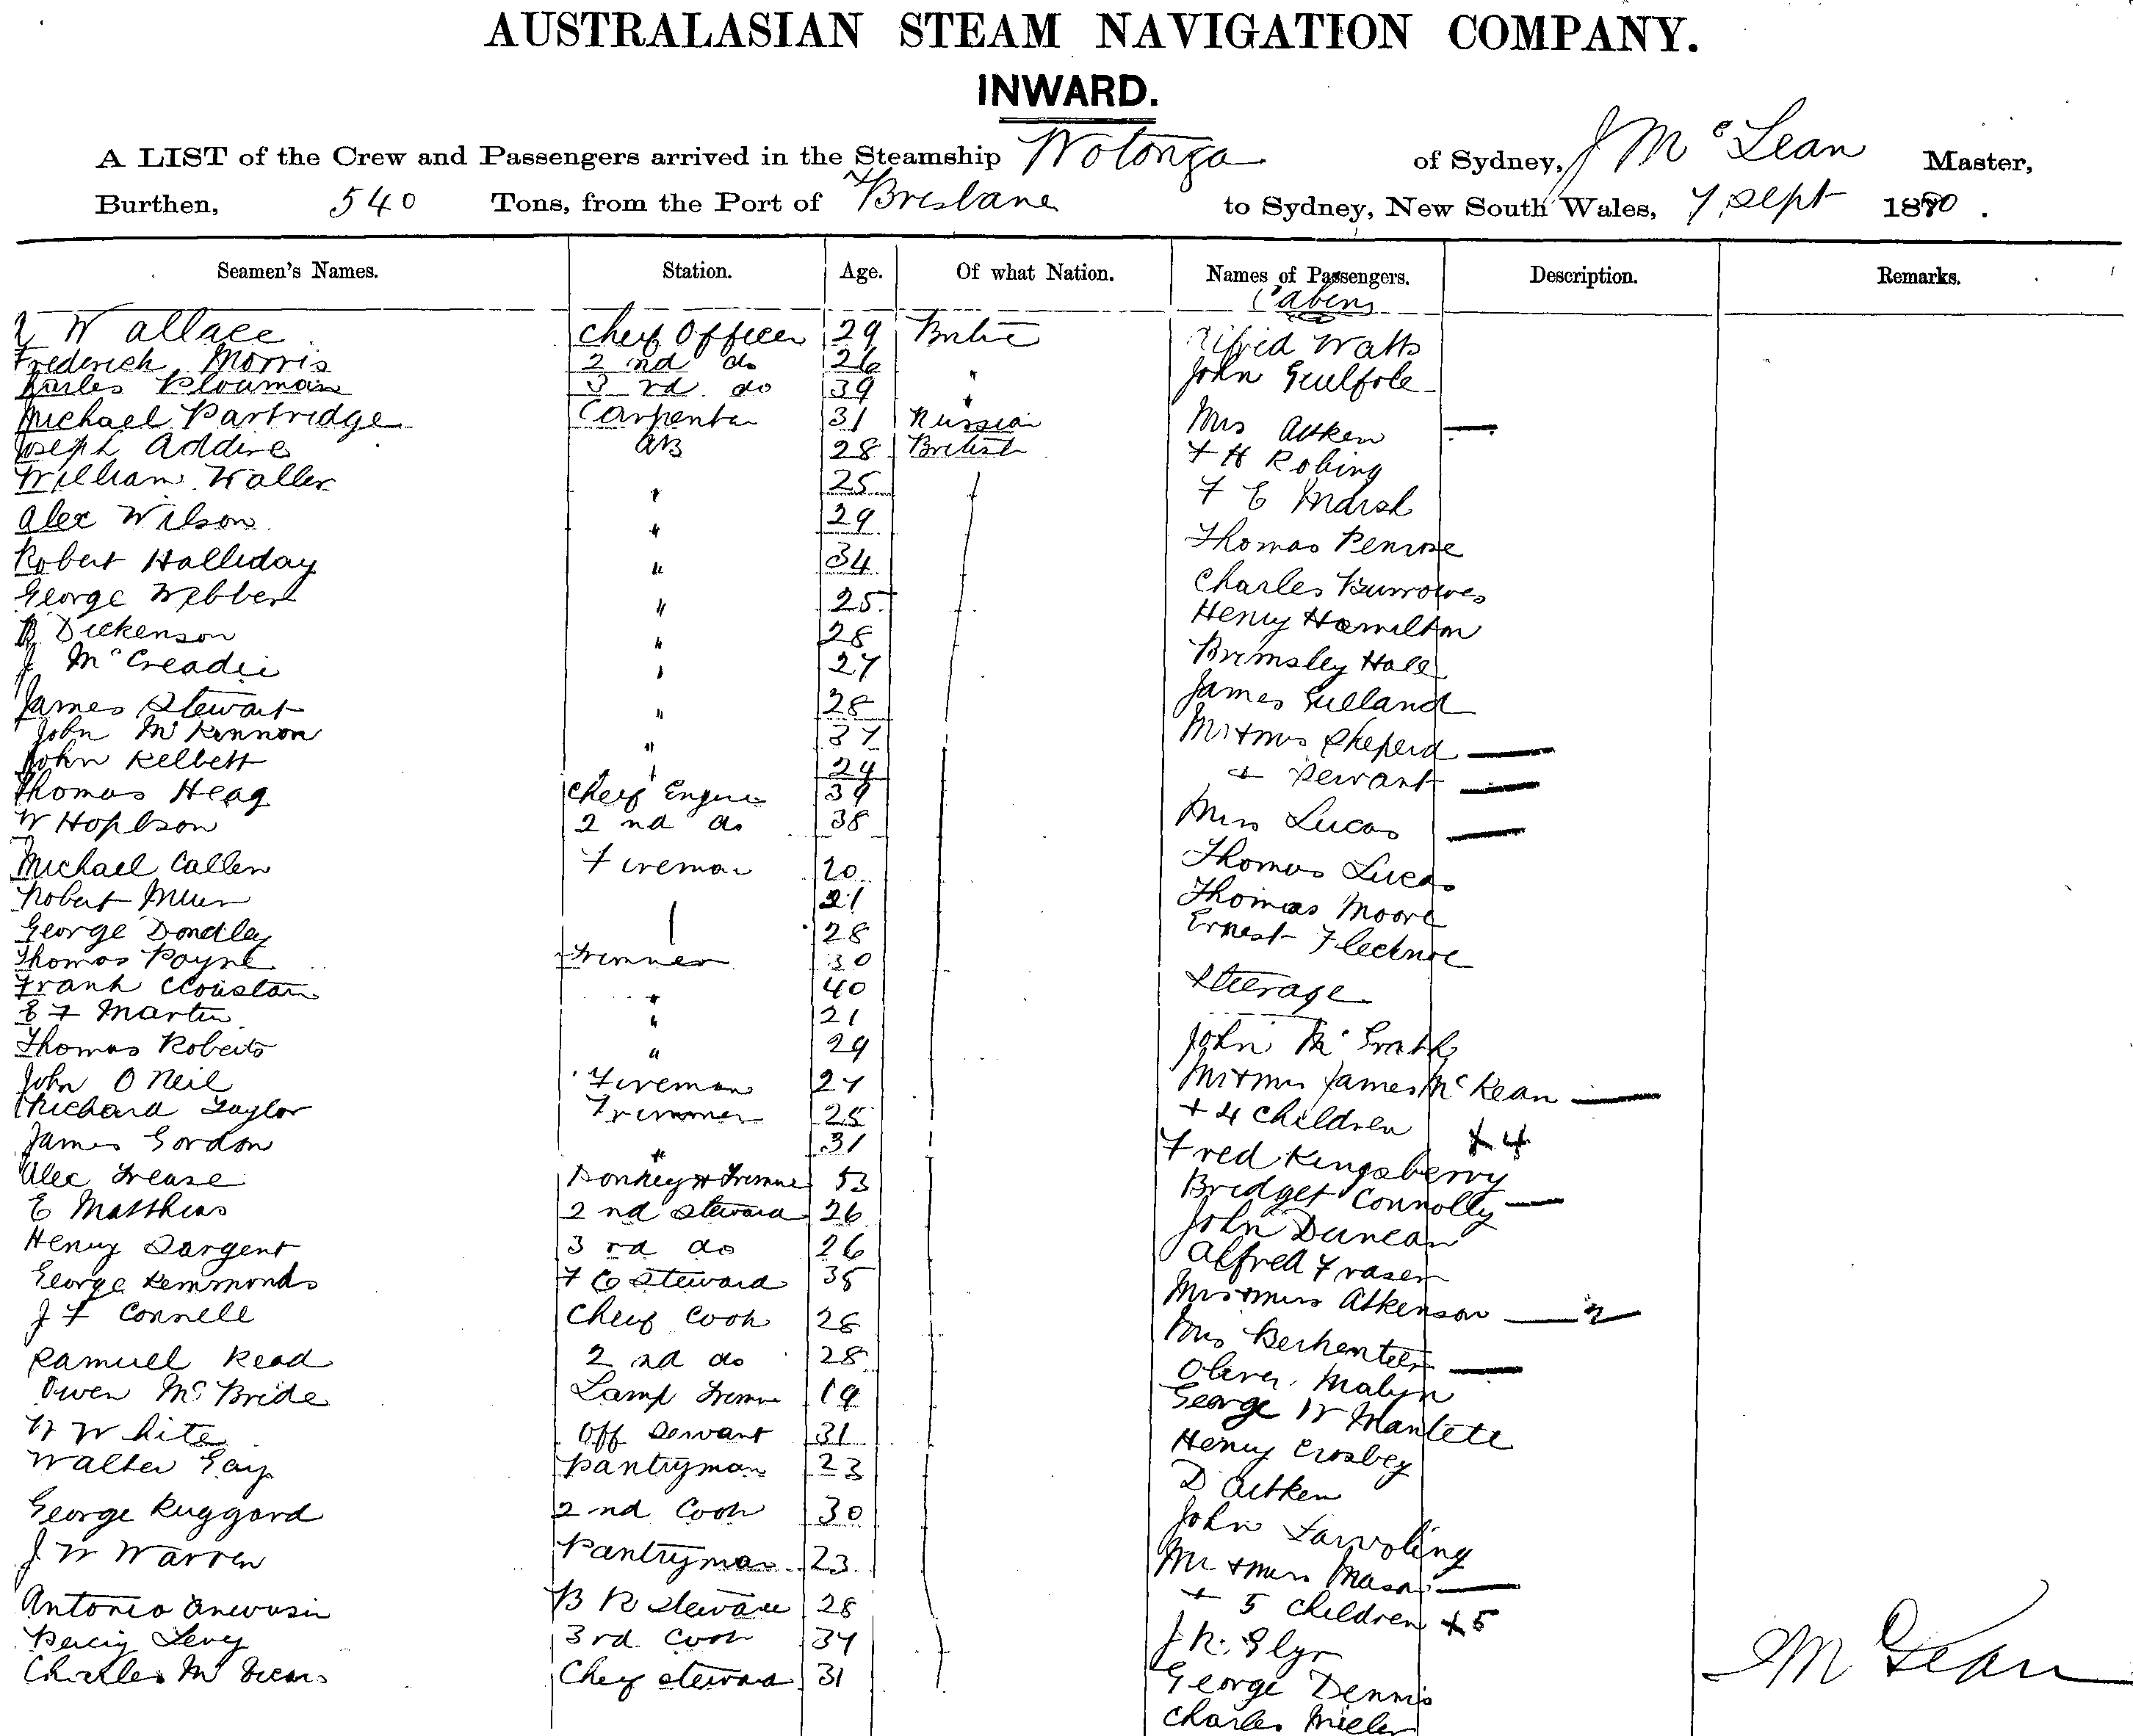 AUSTRALASIAN STEAM NAVIGATION COMPANY.
INWARD.
A LIST of the Crew and Passengers arrived in the Steamship Wotonga of Sydney, J McLean Master,
Burthen, 540 Tons, from the Port of Brisbane to Sydney, New South Wales, 7 Sept 1880.
Seamen's Names. Station. Age. Of what Nation. Names of Passengers. Description. Remarks.
Cabin
Wallace Cheif Officer 29 Alfred Watts
Frederick Morris 2nd do 26 John Guilfole
Charles Plouman 3rd do 39 "
Michael Partridge Carpenter 31 Russian Mrs Aitken —
Joseph 28 British + H Robins
William Waller " 25 F E Marsh
Alex Wilson " 29 Thomas Penrose
Robert Halliday " 34 Charles Burrowes
George Webber " 25 Henry Hamilton
B Dickenson " 28 Hall
J McCreadie " 27 James Gulland
James Stewart " 28 Mr + Mrs Sheperd —
John McKennon " 37 + Servant —
John Kelbett " 29
Thomas Heag Cheif Engine 39 Mrs Lucas —
W Hopbson 2nd do 38 Thomas Lucas
Michael Callen Fireman 20 Thomas Moore
Robert 21 Ernest Flecknoe
George Dondley 28
Thomas Payne Trimmer 30 Steerage
Frank Clouston " 40
E F Martin " 21 John McGrath
Thomas Roberts " 29 Mr + Mrs James McKean —
John O Neil Fireman 27 + 4 Children + 4
Richard Taylor Trimmer 25 Fred Kingsberry
James Gordon " 31 Bridget Connolly —
Alec Donkey 53 John Duncan
E Matthias 2nd Steward 26 Alfred Fraser
Henry Sargent 3rd do 26 Atkenson — 2
George Hemmonds F C Steward 35 Mrs —
J F Connell Cheif Cook 28 Oliver Malyn
Samuel Read 2nd do 28 George W
Owen McBride Lamp 19 Henry Crosbey
White Off Servant 31 D Aitken
Walter Gay Pantryman 23 John
George Ruggard 2nd Cook 30 Mr + Mrs Mason —
J W Warren Pantryman 23 + 5 Children + 5
Antonio B R Steward 28 Glyn
Percy Levy 3rd Cook 34 George Dennis
Charles Cheif Steward 31 Charles Miller
McLean